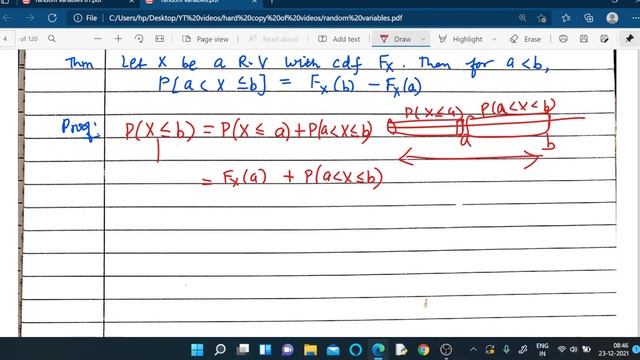 random variables 01.pdf random variables.pdf
C:/Users/hp/Desktop/YT%20videos/hard%20copy%20of%20videos/random%20variables.pdf
4 of 120 Draw Read aloud
Thm Let X be a R.V with cdf Fx. Then for a<b,
P[a<X≤b] = Fx(b) - Fx(a)
Proof: P(X≤b) = P(X≤a) + P(a<X≤b) P(X≤a) P(a<X≤b)
a b
= Fx(a) + P(a<X≤b)
ENG 08:46
23-12-2021